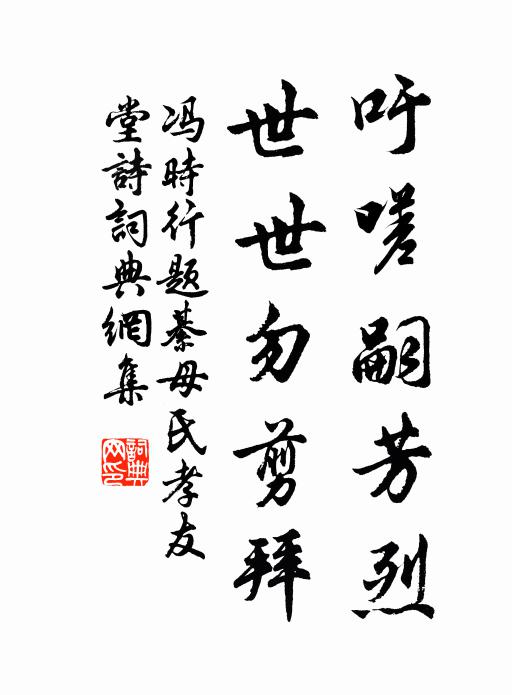 吁嗟嗣芳烈
世世勿剪拜
冯時行题綦母氏孝友
堂詩詞典網集
詞典网印